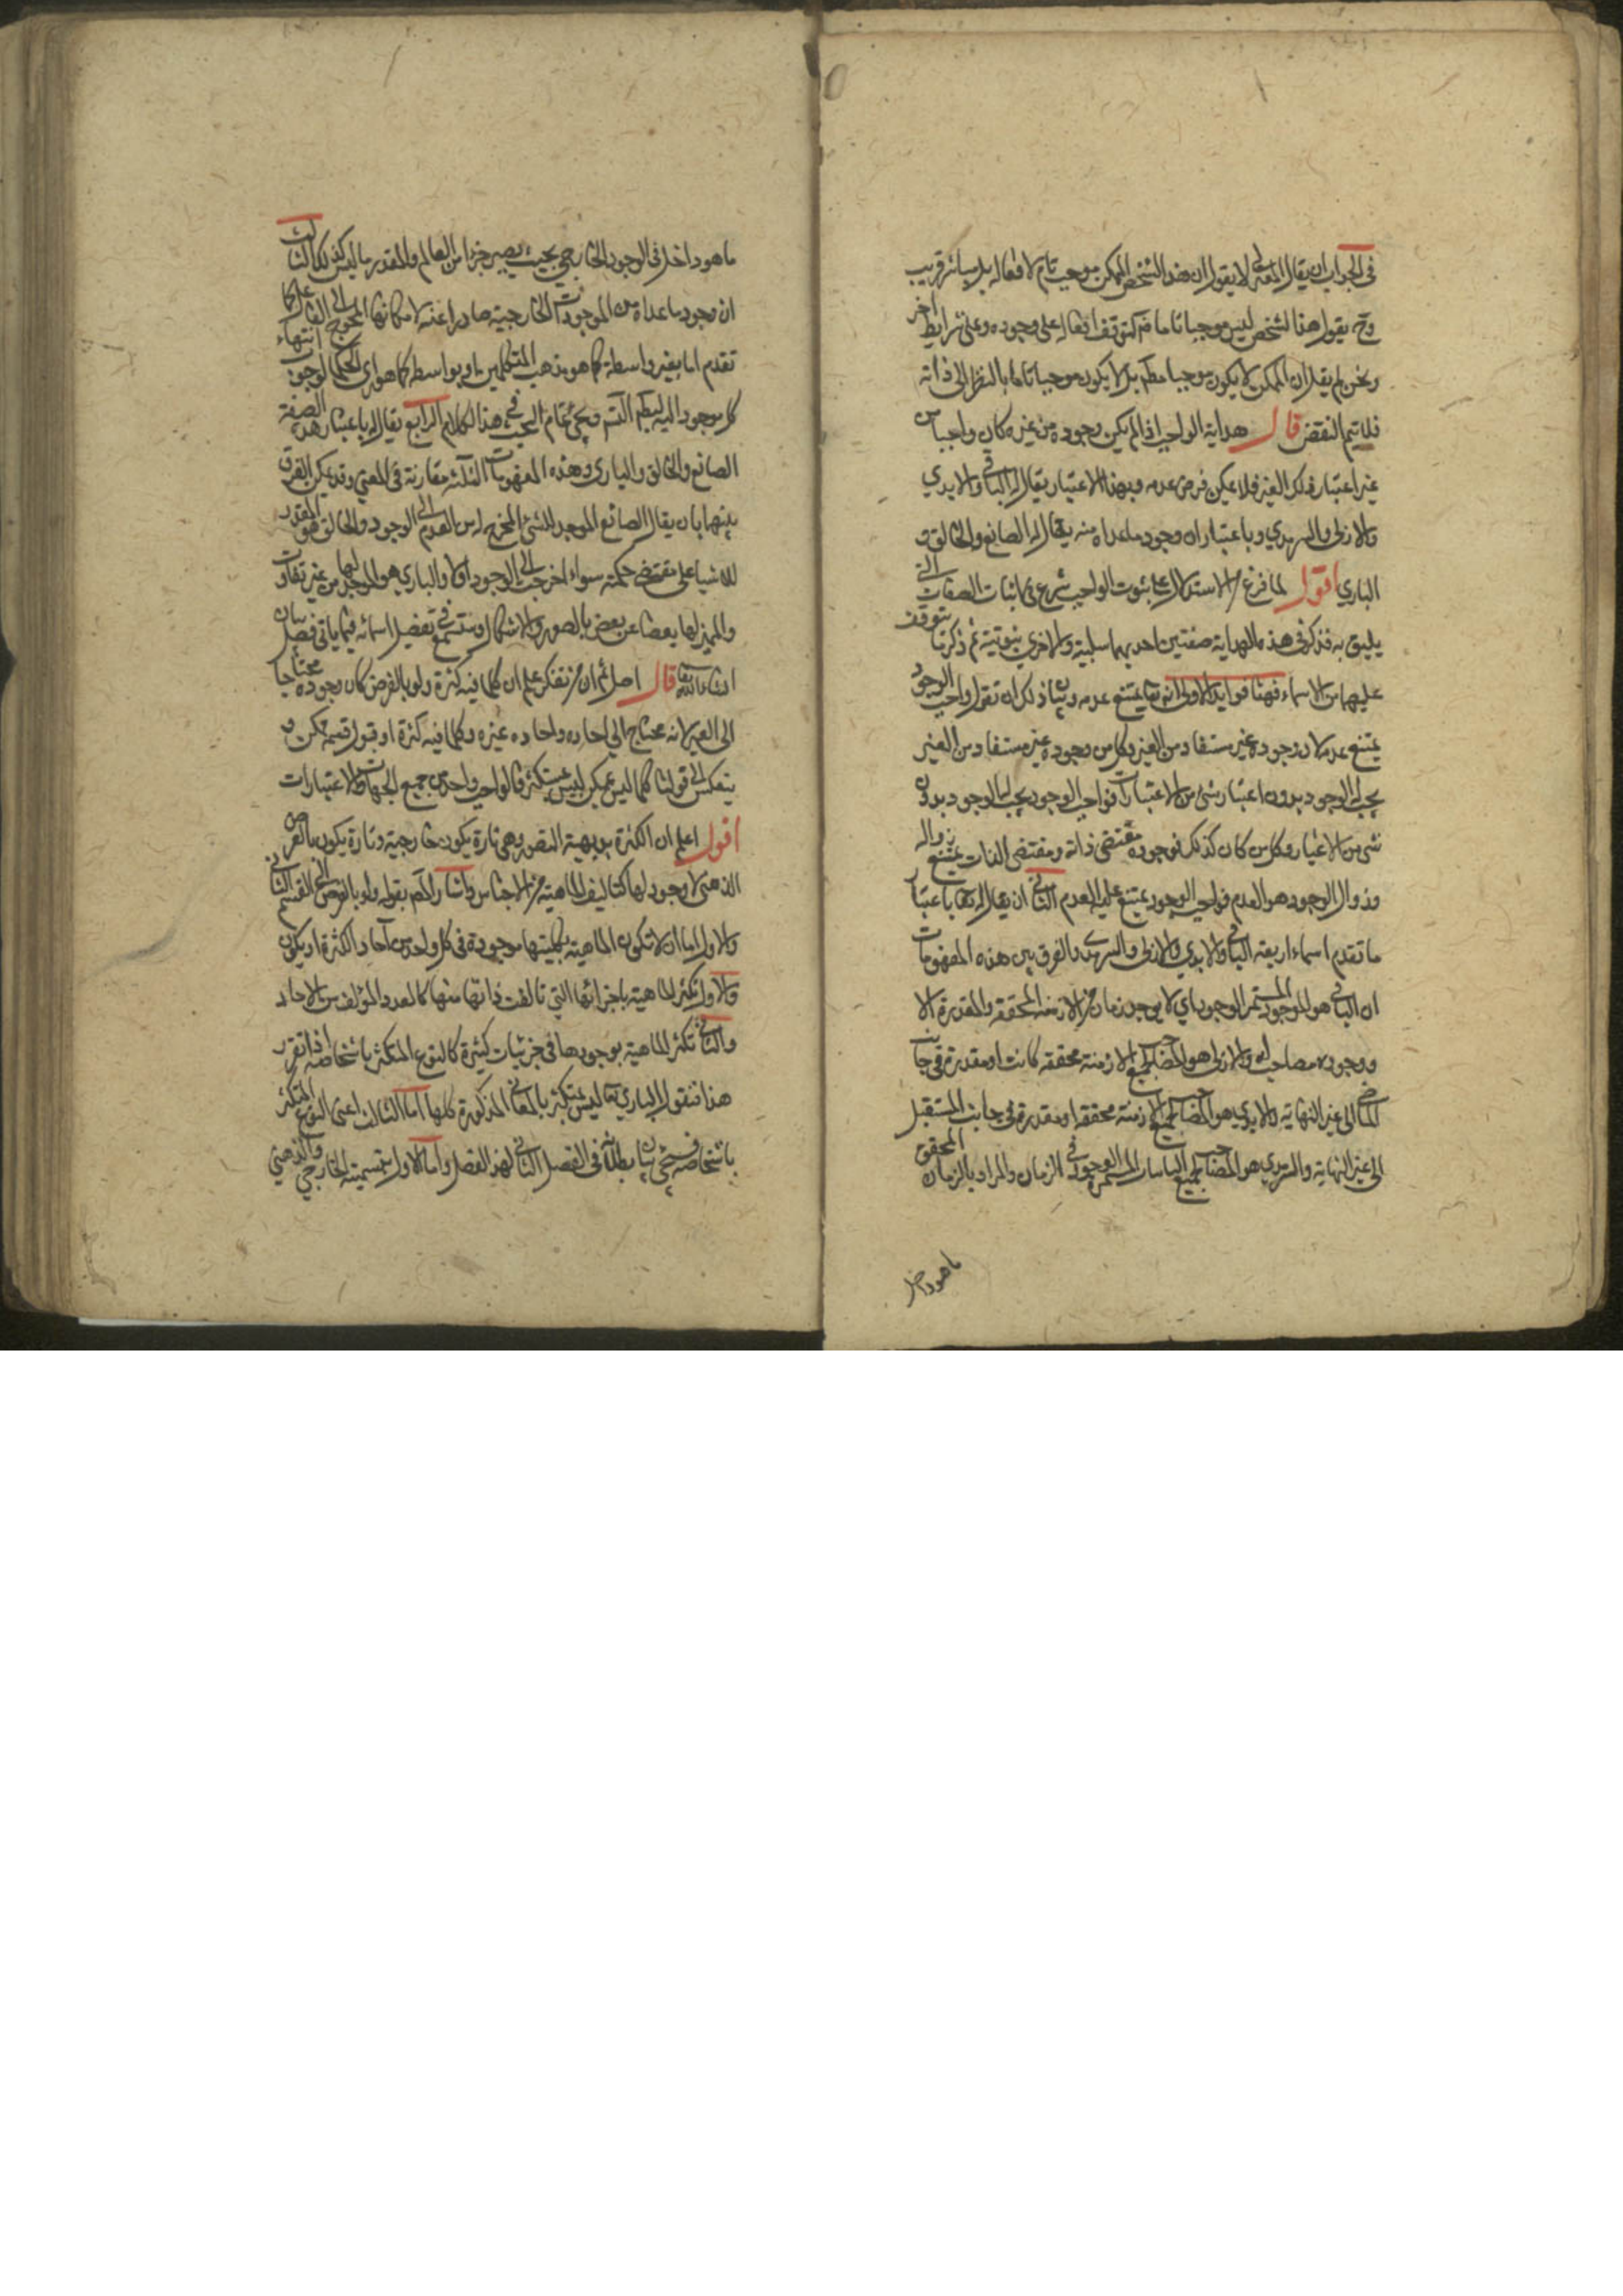 في الجواب ان يقال المعتزلي لا يقول ان هذا الشخص الممكن موجب تام لافعاله بل مباشر قريب
وح يقول هذا الشخص ليس موجبا تاما لتوقف افعاله على وجوده وعلى شرايط اخر
ونحن لم يقل ان الممكن لا يكون موجبا مطم بل لا يكون موجبا تاما بالنظر الى ذاته
فلا يتم النقض قال هداية الواجب اذا لم يكن وجوده من غيره كان واجبا من
غير اعتبار ذلك الغير فلا يمكن فرض عدمه وبهذا الاعتبار يقال له الباقي والابدي
والازلي والسرمدي وباعتبار ان وجود ما عداه منه يقال له الصانع والخالق و
الباري اقول لما فرغ من الاستدلال على ثبوت الواجب شرع في اثبات الصفات التي
يليق به فذكر في هذه الهداية صفتين احديهما سلبية والاخرى ثبوتية ثم ذكر ما يتوقف
عليهما من الاسماء فهنا فوايد الاولى انه تعا يمتنع عدمه وبيان ذلك ان تقول واجب الوجود
يمتنع عدمه لان وجوده غير مستفاد من الغير وكل من وجوده غير مستفاد من الغير
يجب له الوجود بدون اعتبار شئ من الاعتبارات فواجب الوجود يجب له الوجود بدون
شئ من الاغيار وكل من كان كذلك فوجوده مقتضى ذاته ومقتضى الذات يمتنع زواله
وزوال الوجود هو العدم فواجب الوجود يمتنع عليه العدم الثاني ان يقال له تعا باعتبار
ما تقدم اسماء اربعة الباقي والابدي والازلي والسرمدي والفرق بين هذه المفهومات
ان الباقي هو الموجود المستمر الوجود اي لا يوجد زمان من الازمنة المحققة والمقدرة الا
ووجوده مصاحب له والازلي هو المصاحب لجميع الازمنة محققة كانت او مقدرة في جانب
الماضي الى غير النهاية والابدي هو المصاحب لجميع الازمنة محققة او مقدرة في جانب المستقبل
الى غير النهاية والسرمدي هو المصاحب لجميع المستمرة الوجود في الزمان والمراد بالزمان المحقق
ما هو داخل
ما هو داخل في الوجود الخارجي بحيث يصير جزا من العالم والمقدر ما ليس كذلك الثالث
ان وجود ما عداه من الموجودات الخارجية صادرا عنه لامكانها المحوج الى الفاعل كما
تقدم اما بغير واسطة كما هو مذهب المتكلمين او بواسطة كما هو راي الحكما لوجوب انتهاء
كل موجود اليه ويجئ تمام البحث في هذا الكلام الرابع يقال له باعتبار هذه الصفة
الصانع والخالق والباري وهذه المفهومات الثلثة مقاربة في المعنى وقد يمكن الفرق
بينها بان يقال الصانع الموجد للشئ المخرج له من العدم الى الوجود والخالق هو المقدر
للاشيا على مقتضى حكمته سواء اخرجت الى الوجود او لا والباري هو الموجد لها من غير تفاوت
والمميز لها بعضا عن بعض بالصور والاشكال وستسمع تفصيل اسمائه فيما ياتي في فصل بيان
انشاء الله تعا قال اصل ثم ان من تفكر علم ان كلما فيه كثرة ولو بالفرض كان وجوده محتاجا
الى الغير لانه محتاج الى احاده واحاده غيره وكلما فيه كثرة او قبول قسمة ممكن و
ينعكس الى قولنا كلما ليس بممكن ليس بمتكثر فالواجب واحد من جميع الجهات والاعتبارات
اقول اعلم ان الكثرة بديهية التصور وهي تارة يكون خارجية وتارة يكون بالفرض
الذهني لا وجود لها كتاليف الماهية من الاجناس واشار المصم بقوله ولو بالفرض الى القسم الثاني
والاول اما ان لا تكون الماهية بكليتها موجودة في كل واحد من آحاد الكثرة او يكون
والاول تكثر الماهية باجزائها التي تالفت ذاتها منها كالعدد المؤلف من الاحاد
والثاني تكثر الماهية بوجودها في جزئيات كثيرة كالنوع المتكثر باشخاصه اذا تقرر
هذا فنقول الباري تعا ليس بمتكثر بالمعاني المذكورة كلها اما الثالث اعني النوع المتكثر
باشخاصه فسيجئ بيان بطلانه في الفصل الثاني لهذا الفصل واما الاول بقسميه الخارجي والذهني